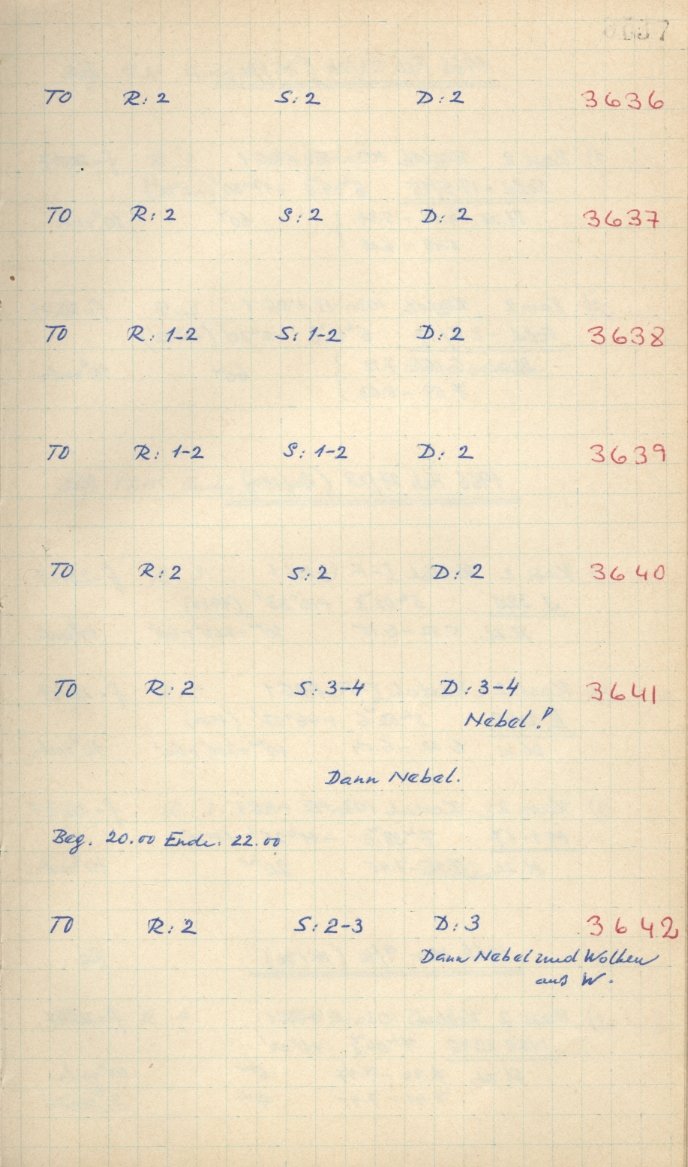 TO R: 2 S: 2 D: 2 3636
TO R: 2 S: 2 D: 2 3637
TO R: 1-2 S: 1-2 D: 2 3638
TO R: 1-2 S: 1-2 D: 2 3639
TO R: 2 S: 2 D: 2 3640
TO R: 2 S: 3-4 D: 3-4 3641
Nebel!
Dann Nebel.
Beg. 20.00 Ende: 22.00
TO R: 2 S: 2-3 D: 3 3642
Dann Nebel und Wolken
aus W.